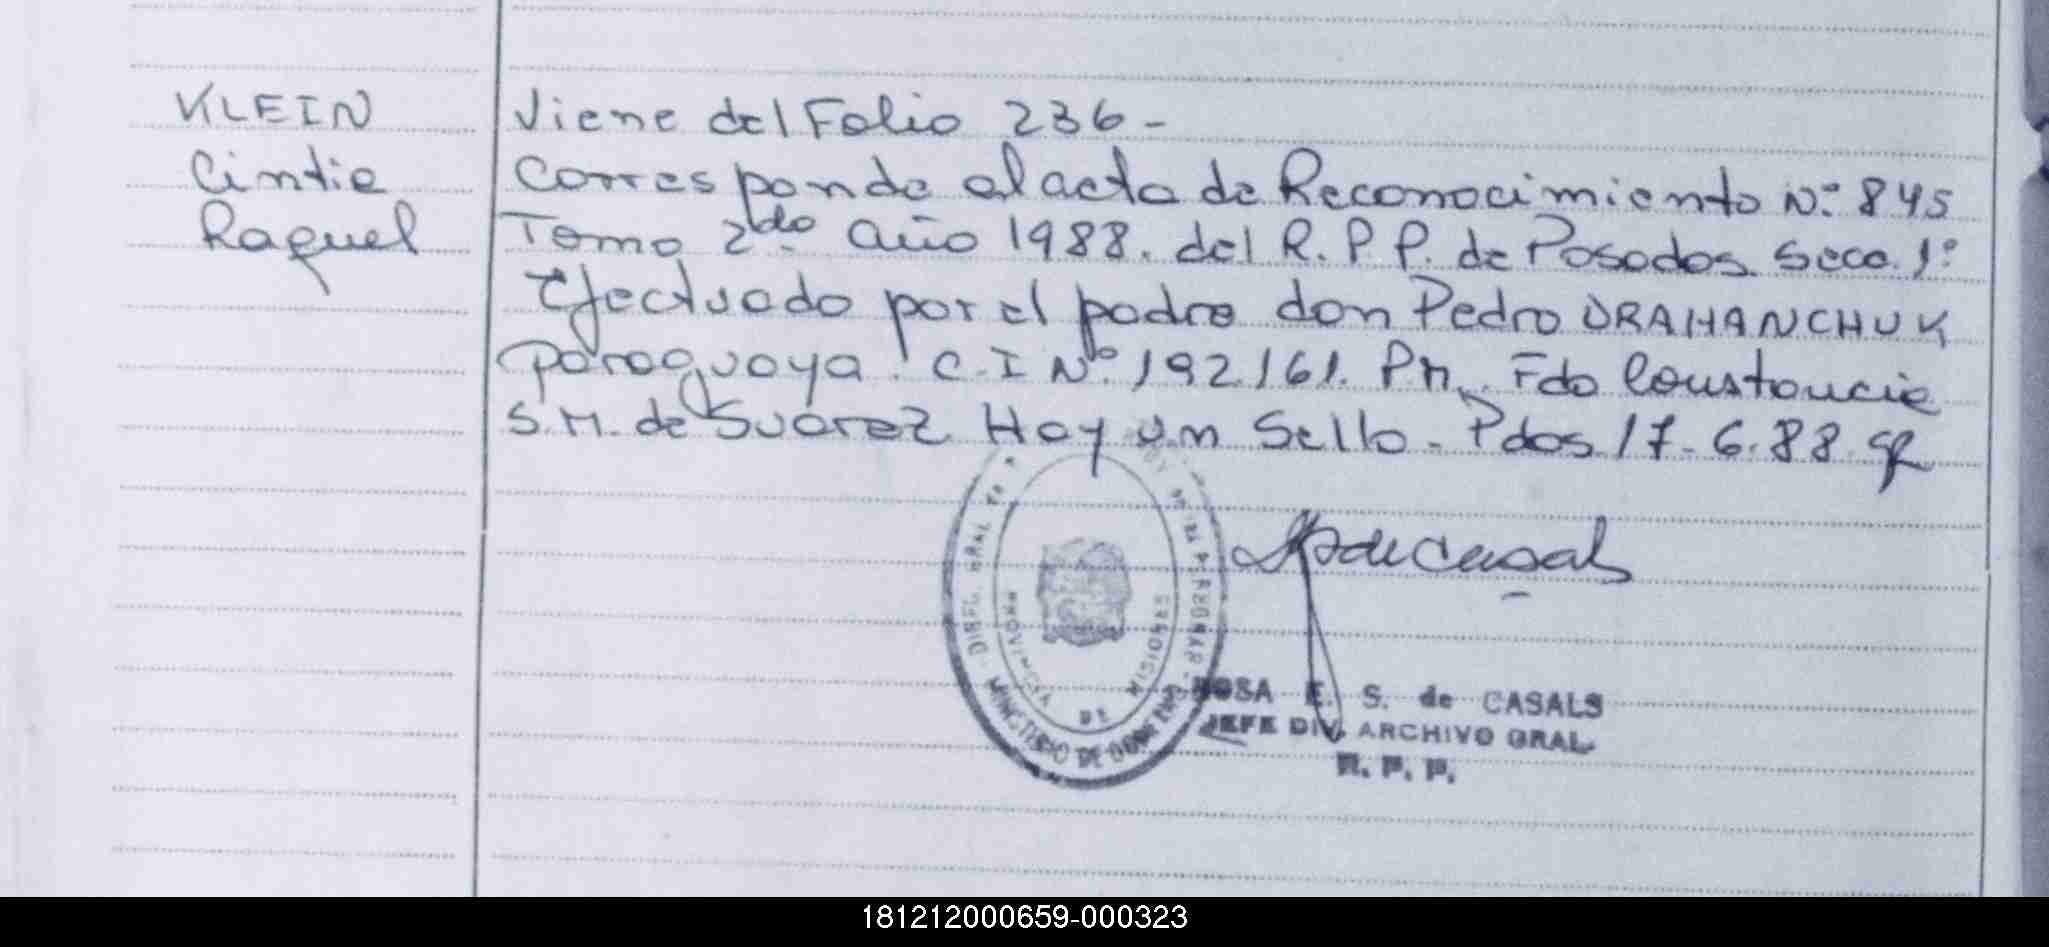 KLEIN
Cintia
Raquel
Viene del Folio 236-
Corresponde al acta de Reconocimiento Nº 845
Tomo 2do. año 1988. del R.P.P. de Posadas Secc. 1º
Efectuado por el padre don Pedro DRAHANCHUK
paraguaya. C.I Nº 192.161. Pn. Fdo Constancia
S.M. de Suárez Hay un Sello - Pdas 17-6-88
PROVINCIA DE MISIONES
ROSA E. S. de CASALS
JEFE DIV. ARCHIVO GRAL.
R. P. P.
181212000659-000323